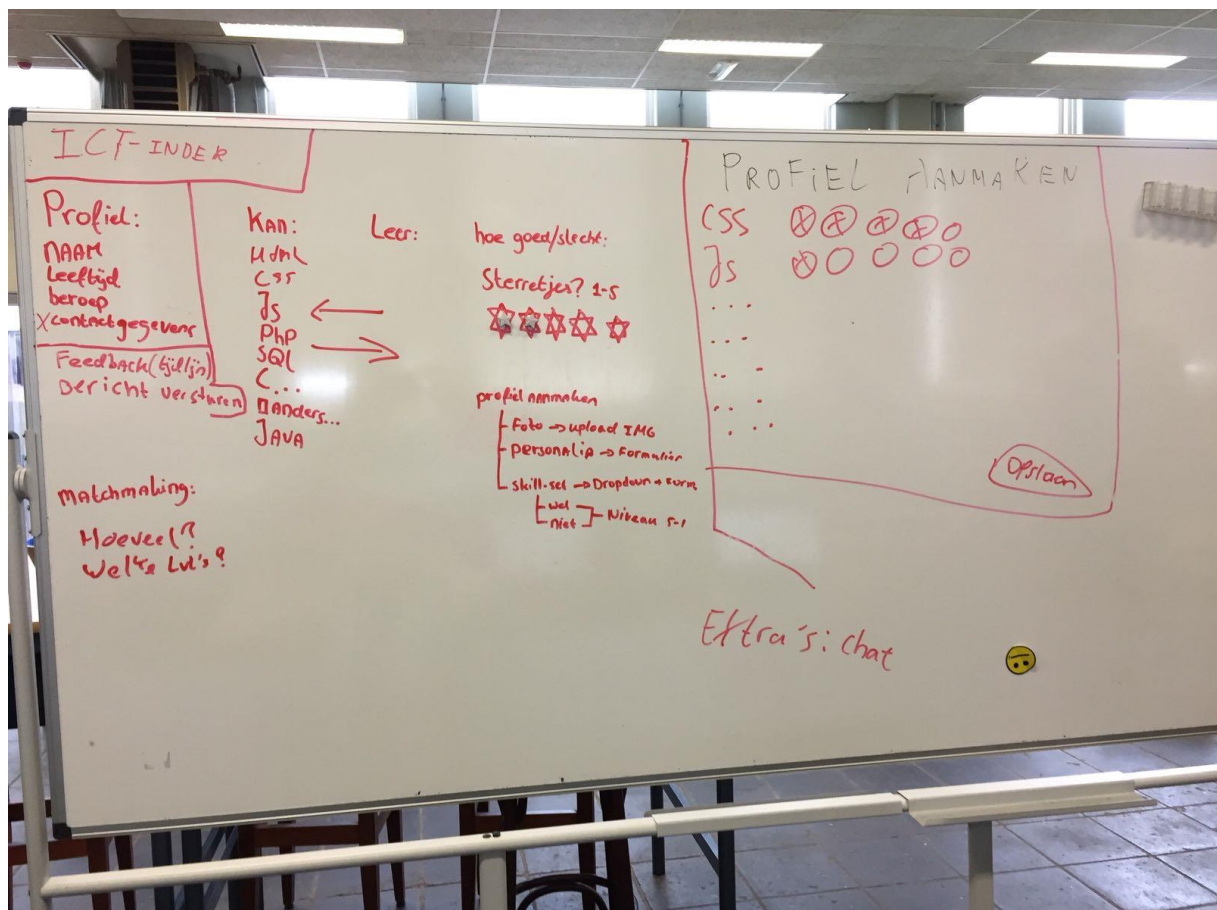 ICT-INDER
Profiel:
NAAM
Leeftijd
beroep
X contactgegevens
Feedback(tijdlijn)
Bericht versturen
KAN:
Html
CSS
JS
PhP
SQL
C...
Anders...
JAVA
Leer:
hoe goed/slecht:
Sterretjes? 1-5
profiel aanmaken
Foto → upload IMG
personalia → Formulier
skill-set → Dropdown + Form
wel
niet
Niveau 5-1
matchmaking:
Hoeveel?
Welke Lvl's?
PROFIEL AANMAKEN
CSS
JS
...
...
.. .
.. .
. . .
opslaan
Extra's: chat